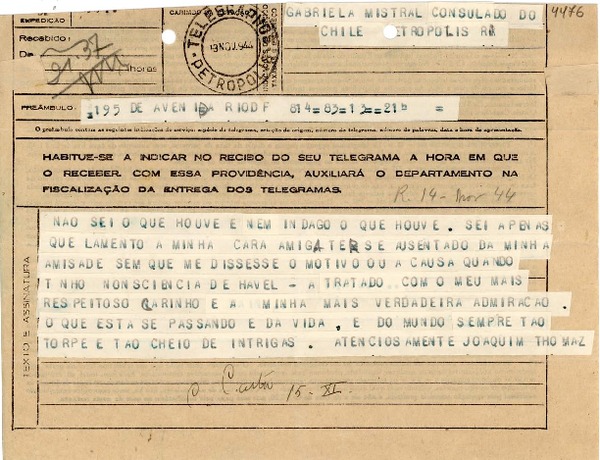 EXPEDIÇÃO
GABRIELA MISTRAL CONSULADO DO
4476
Recebido:
CHILE PETROPOLIS RJ
De 21.37
horas
TELEGRAPHOS
13 NOV. 944
PETROPOLIS
PREÂMBULO: 195 DE AVENIDA RIODF 814= 83=13=21h =
O preâmbulo contém as seguintes indicações de serviço: espécie do telegrama, estação de origem, número do telegrama, número de palavras, data e hora da apresentação.
HABITUE-SE A INDICAR NO RECIBO DO SEU TELEGRAMA A HORA EM QUE
O RECEBER. COM ESSA PROVIDÊNCIA, AUXILIARÁ O DEPARTAMENTO NA
FISCALIZAÇÃO DA ENTREGA DOS TELEGRAMAS.
R. 14-Nov 44
TEXTO E ASSINATURA
NAO SEI O QUE HOUVE E NEM INDAGO O QUE HOUVE. SEI APENAS
QUE LAMENTO A MINHA CARA AMIGA TER SE AUSENTADO DA MINHA
AMISADE SEM QUE ME DISSESSE O MOTIVO OU A CAUSA QUANDO
T NHO NONSCIENCIA DE HAVEL - A TRATADO COM O MEU MAIS
RESPEITOSO CARINHO E A MINHA MAIS VERDADEIRA ADMIRACAO.
O QUE ESTA SE PASSANDO E DA VIDA, E DO MUNDO SEMPRE TAO
TORPE E TAO CHEIO DE INTRIGAS. ATENCIOSAMENTE JOAQUIM THOMAZ
C. Carta 15-XI